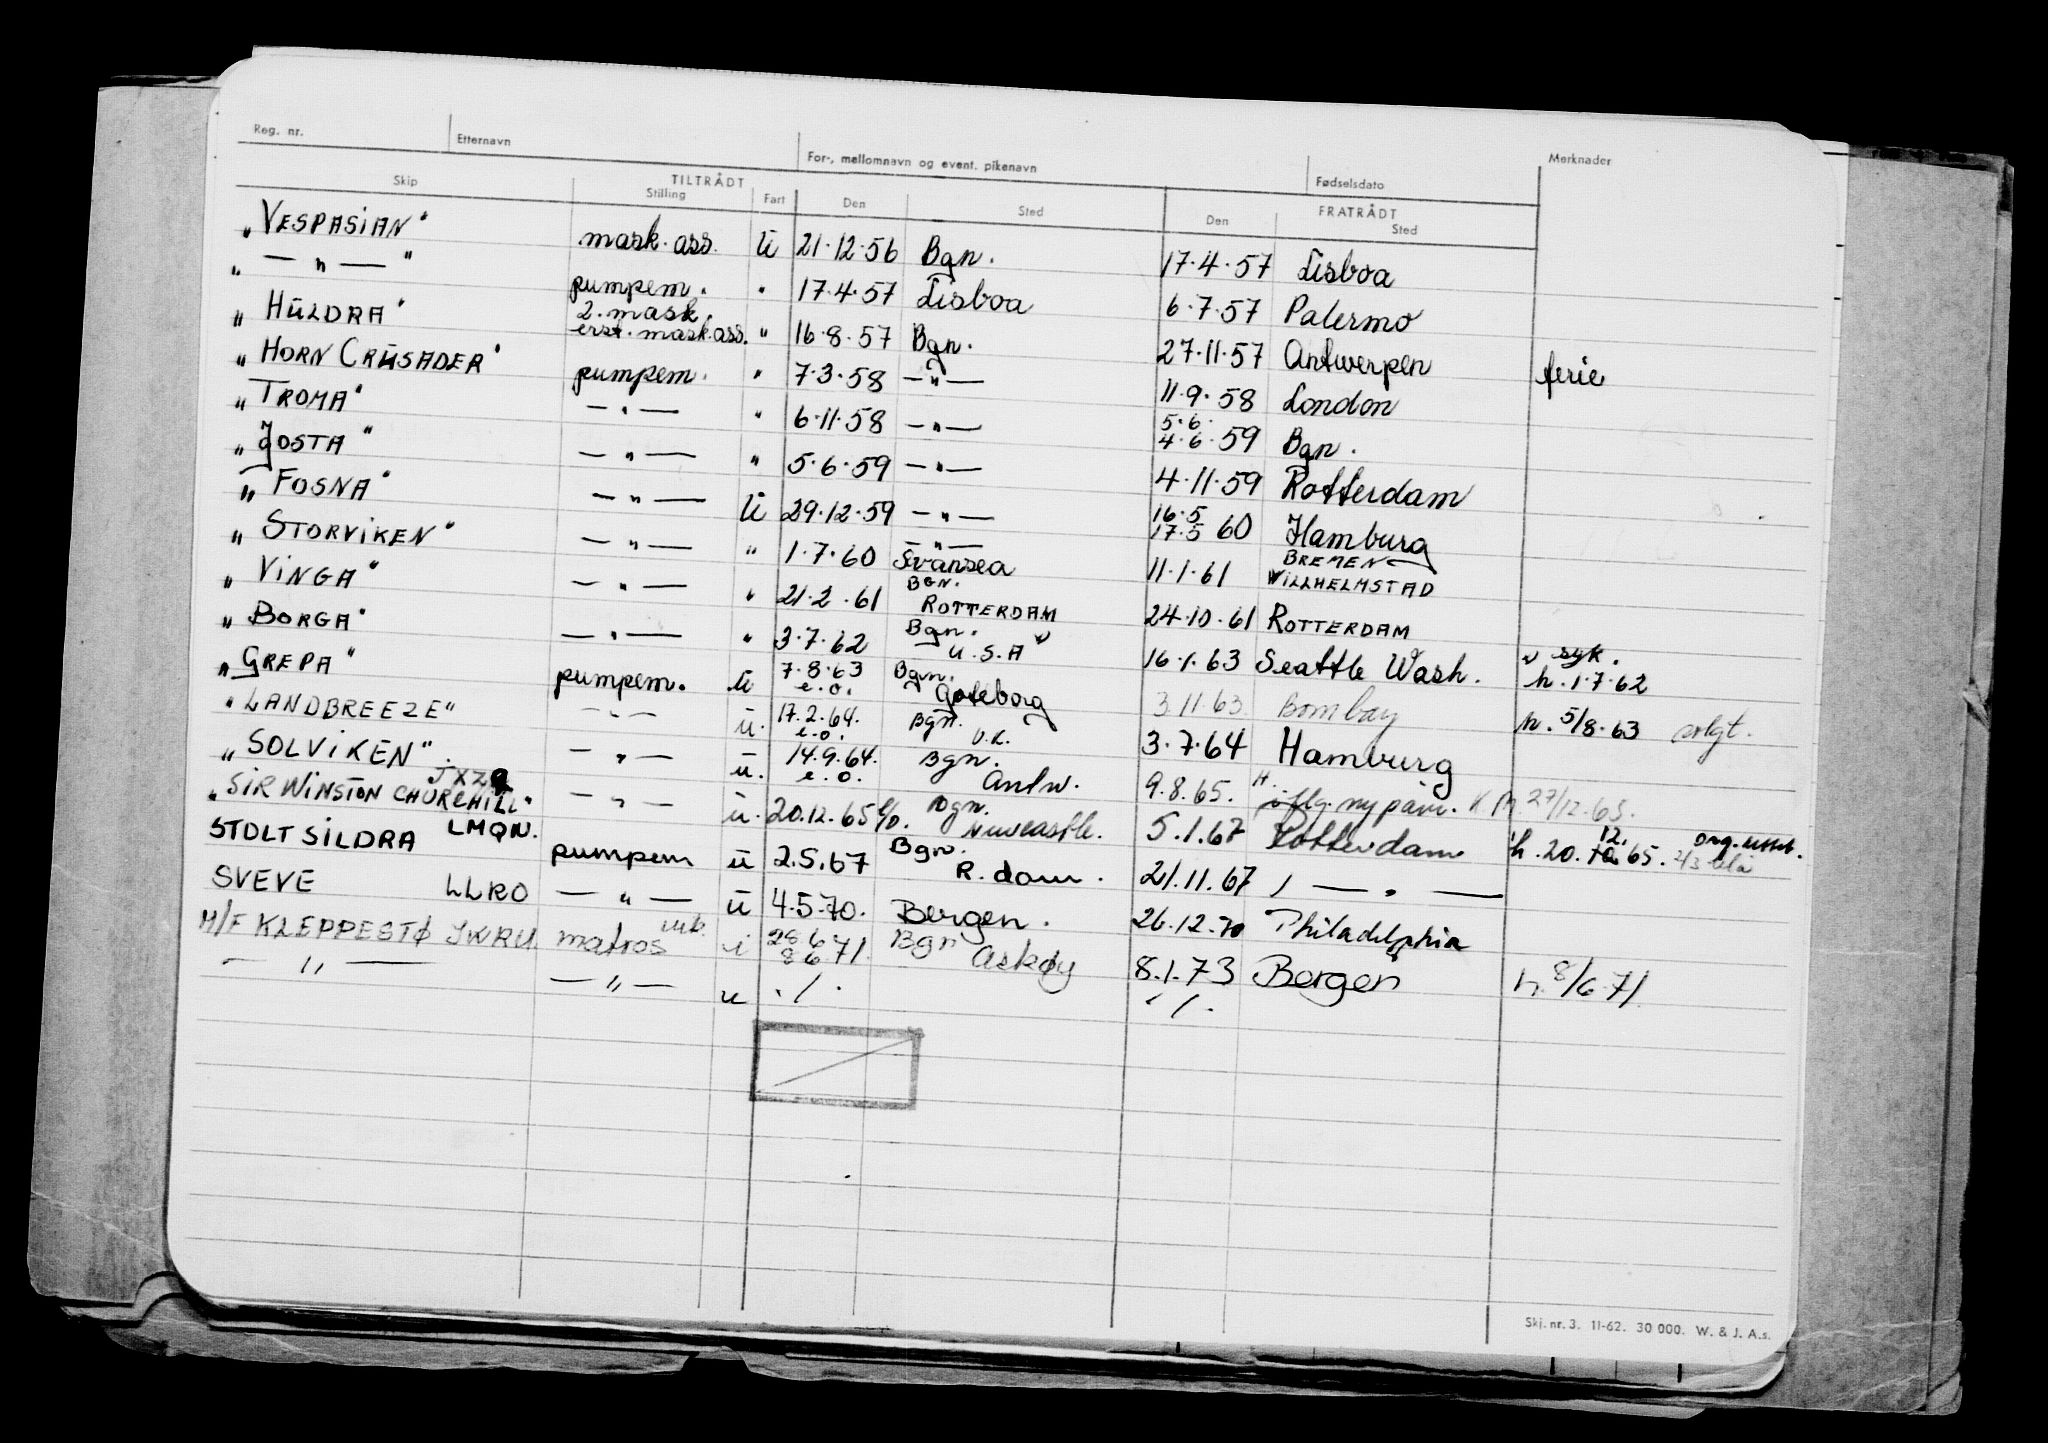 Reg. nr. Etternavn For-, mellomnavn og event. pikenavn Fødselsdato Merknader
TILTRÅDT FRATRÅDT
Skip Stilling Fart Den Sted Den Sted
"VESPASIAN" mask. ass. U 21.12.56 Bgn. 17.4.57 Lisboa
" — " — " pumpem. " 17.4.57 Lisboa 6.7.57 Palermo
"HULDRA" 2. mask. erst. mask. ass. " 16.8.57 Bgn. 27.11.57 Antwerpen ferie
"HORN CRUSADER" pumpem. " 7.3.58 — " — 11.9.58 London
"TROMA" — " — " 6.11.58 — " — 5.6. 4.6.59 Bgn.
"JOSTA" — " — " 5.6.59 — " — 4.11.59 Rotterdam
"FOSNA" — " — U 29.12.59 — " — 16.5 17.5 60 Hamburg
"STORVIKEN" — " — " 1.7.60 — " — Svansea 11.1.61 BREMEN WILLHELMSTAD
"VINGA" — " — " 21.2.61 BGN. ROTTERDAM 24.10.61 ROTTERDAM
"BORGA" — " — " 3.7.62 Bgn. "U.S.A" 16.1.63 Seattle Wash. syk. h. 1.7.62
"GREPA" pumpem. U 7.8.63 e.o. Bgn. Gøteborg 3.11.63 Bombay h. 5/8.63 solgt.
"LANDBREEZE" — " — u. 17.2.64. e.o. Bgn. U.K. 3.7.64 Hamburg
"SOLVIKEN" — " — u. 14.9.64. e.o. Bgn. Antw. 9.8.65. H. ny 27/12.65.
"SIR WINSTON CHURCHILL" — " — u. 20.12.65 e/o. Bgn. Newcastle. 5.1.67 Rotterdam h. 20.12.65.
STOLT SILDRA LMQN. pumpem u 2.5.67 Bgn. R. dam. 21.11.67 — " —
SVEVE LLRO — " — u 4.5.70. Bergen. 26.12.70 Philadelphia
M/F KLEPPESTØ JWRU matros i 28.6 8.6 71. Bgn Askøy 8.1.73 Bergen h. 8/6 71.
— " — — " — u . / . . / .
Skj. nr. 3. 11-62. 30 000. W. & J. A.s.